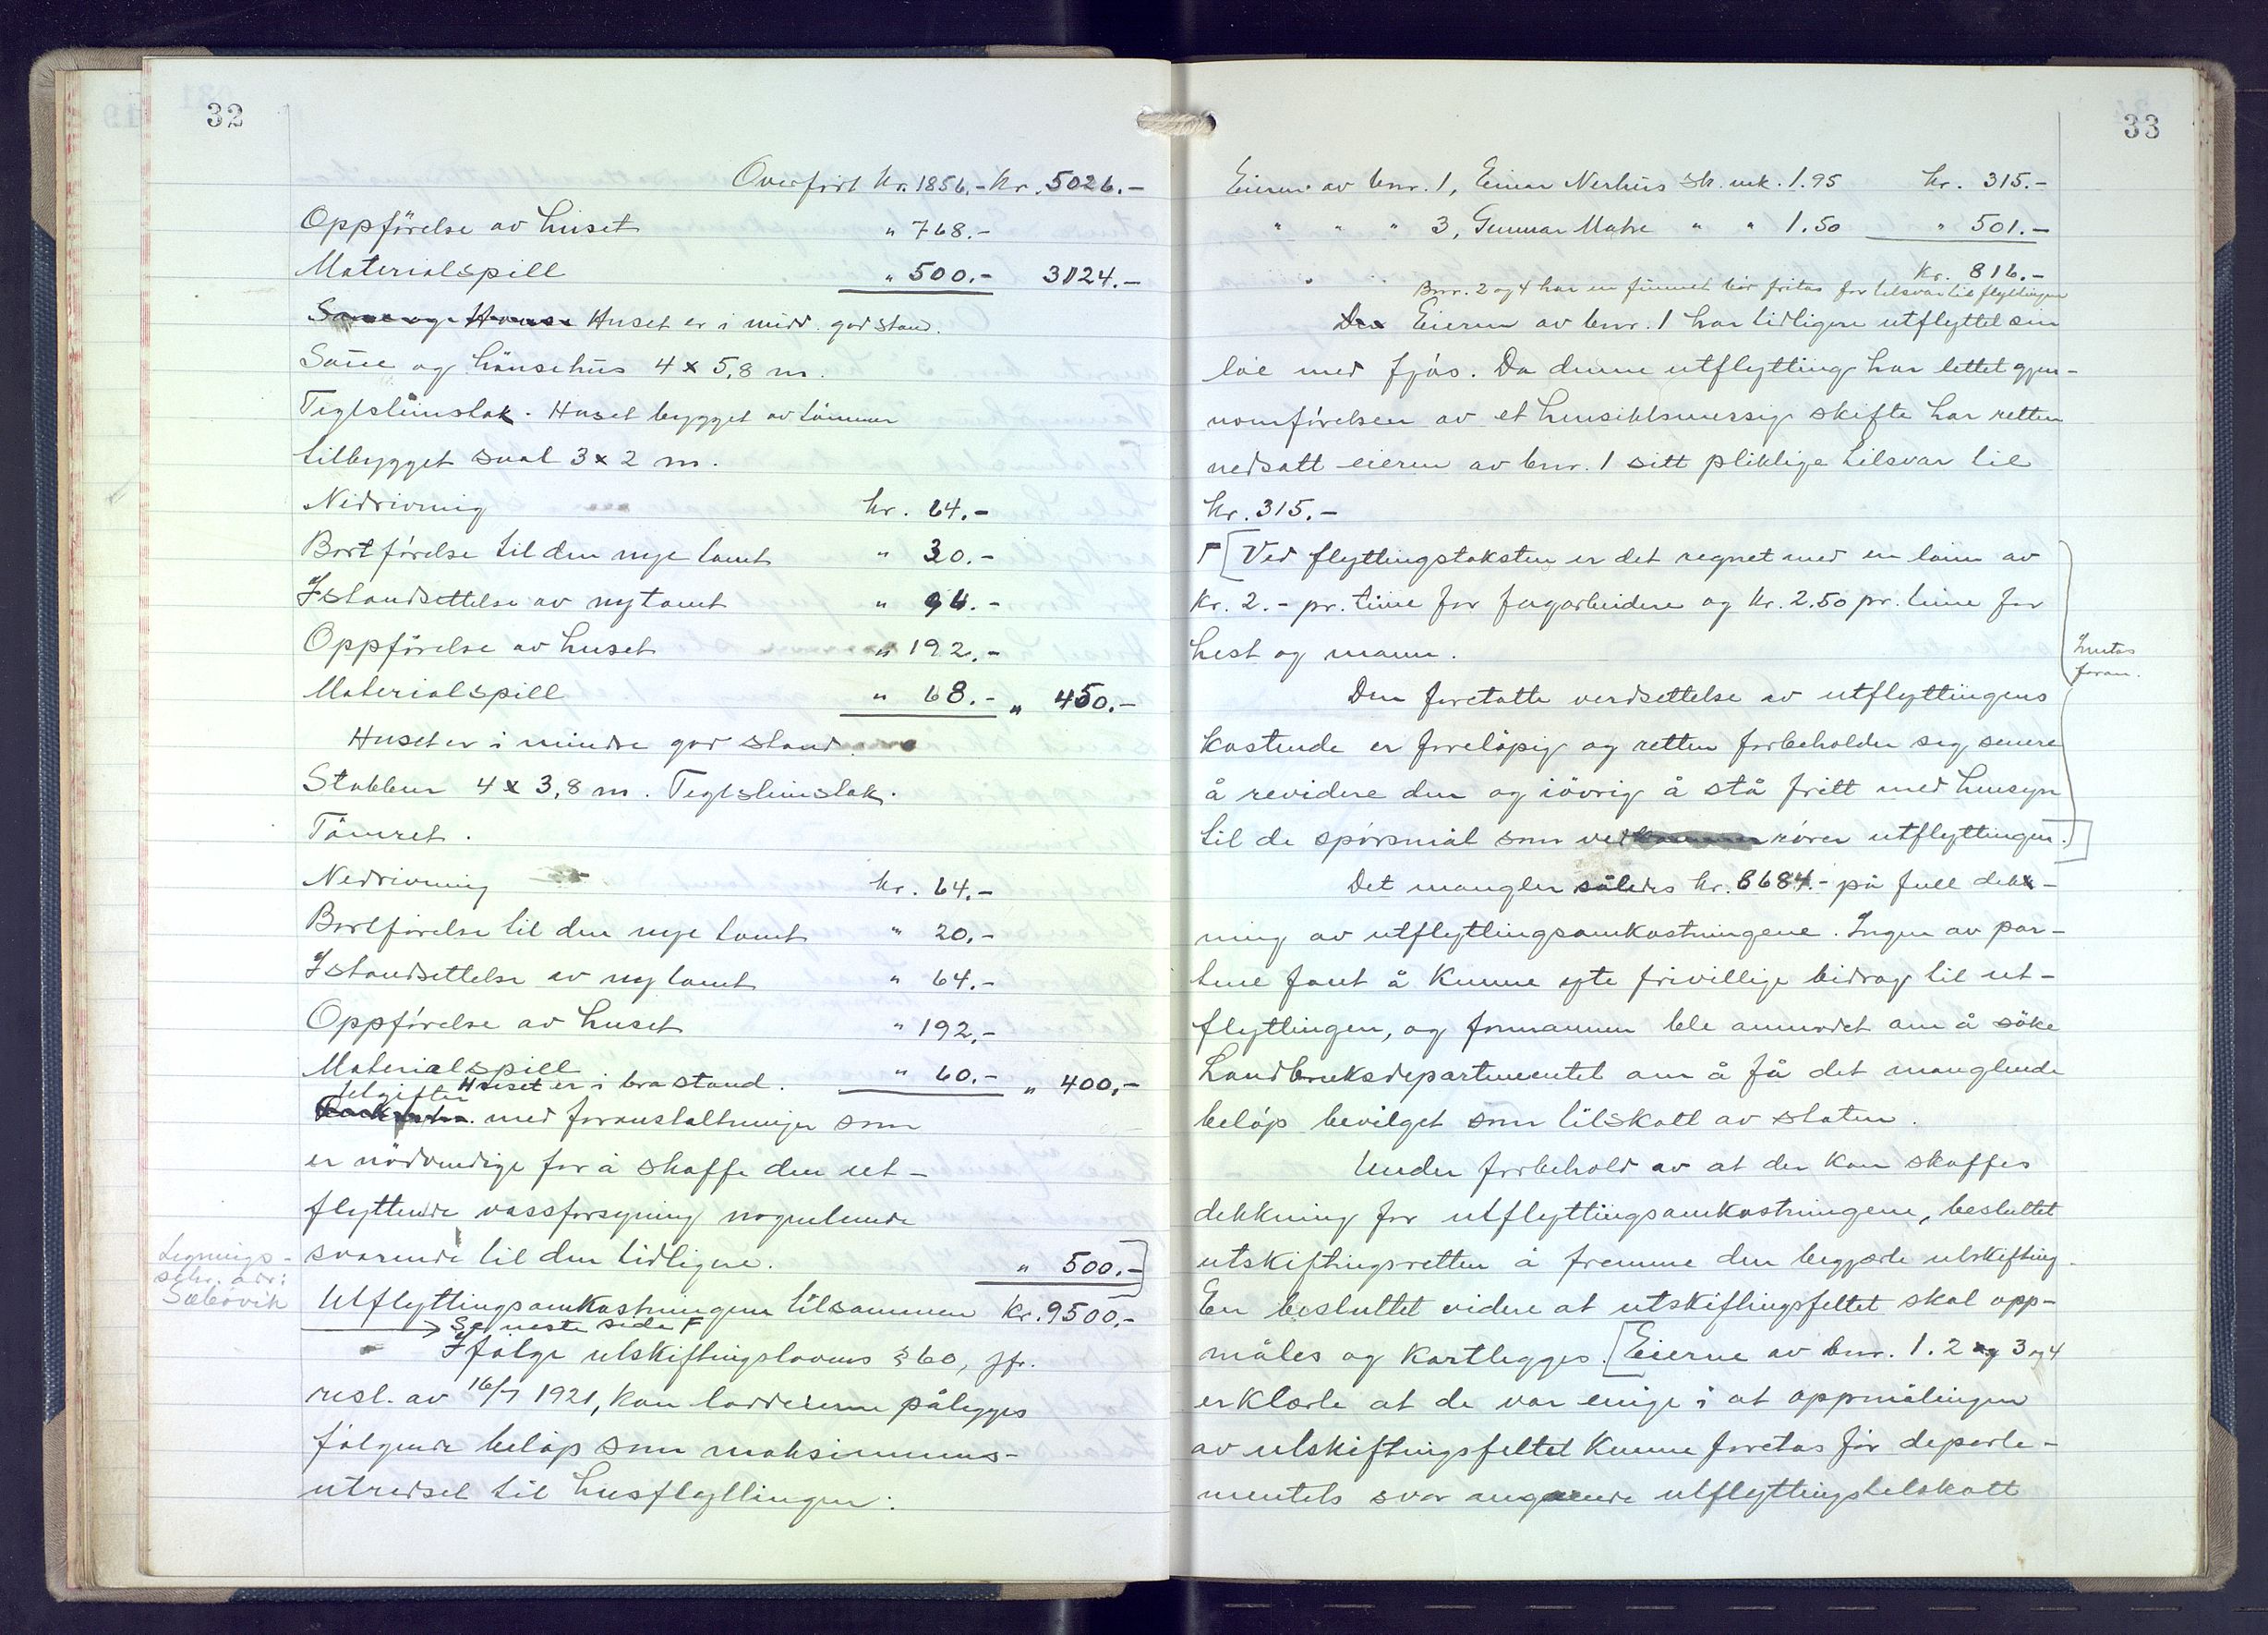 32
Overført kr. 1856.- kr. 5026.-
Oppförelse av huset " 768.-
Materialspill " 500.- 3124.-
Huset er i midd. god stand.
Saue og hönsehus 4 x 5,8 m.
Teglsteinstak. Huset bygget av tömmer
tilbygget sval 3 x 2 m.
Nedrivning kr. 64.-
Bortförelse til den nye tomt " 30.-
Istandsettelse av ny tomt " 96.-
Oppförelse av huset " 192.-
Materialspill " 68.- " 450.-
Huset er i mindre god stand.
Stabbur 4 x 3,8 m. Teglsteinstak.
Tömret.
Nedrivning kr. 64.-
Bortförelse til den nye tomt " 20.-
Istandsettelse av ny tomt " 64.-
Oppförelse av huset " 192.-
Materialspill " 60.- " 400.-
Huset er i bra stand.
Utgifter
med foranstaltninger som
er nödvendige for å skaffe den ut-
flyttende vassforsyning nogenlunde
svarende til den tidligere. " 500.-
Legnings-
adr:
Sæbövik
Utflyttingsomkostningene tilsammen kr. 9500.-
Se neste side F
Ifölge utskiftingslovens § 60, jfr.
resl. av 16/7 1921, kan lodeierne pålegges
fölgende belöp som maksimums-
utredsel til husflyttingen:
33
Eieren av bnr. 1, Einar Nerhus sk. mk. 1.95 kr. 315.-
" " " 3, Gunnar Matre " " 1.50 " 501.-
Kr. 816.-
Bnr. 2 og 4 har en funnet bör fritas for tilsvar til flyttingen
Den Eieren av bnr. 1 har tidligere utflyttet sin
löe med fjös. Da denne utflytting har lettet gjen-
nomförelsen av et hensiktsmessig skifte har retten
nedsatt eieren av bnr. 1 sitt pliktige tilsvar til
kr. 315.-
F [Ved flyttingstaksten er det regnet med en lönn av
kr. 2.- pr. time for fagarbeidere og kr. 2.50 pr. time for
hest og mann.
Inntas
foran.
Den foretatte verdsettelse av utflyttingens
kostende er forelöpig og retten forbeholder seg senere
å revidere den og iövrig å stå fritt med hensyn
til de spörsmål som vedrörer utflyttingen.]
Det mangler således kr. 8684.- på full dekk-
ning av utflyttingsomkostningene. Ingen av par-
tene fant å kunne yte frivillige bidrag til ut-
flyttingen, og formannen ble anmodet om å söke
Landbruksdepartementet om å få det manglende
belöp bevilget som tilskott av staten.
Under forbehold av at der kan skaffes
dekkning for utflyttingsomkostningene, besluttet
utskiftingsretten å fremme den begjærte utskifting.
En besluttet videre at utskiftingsfeltet skal opp-
måles og kartlegges. [Eierne av bnr. 1. 2 og 3 og 4
erklærte at de var enige i at oppmålingen
av utskiftingsfeltet kunne foretas för departe-
mentets svar angående utflyttingstilskott